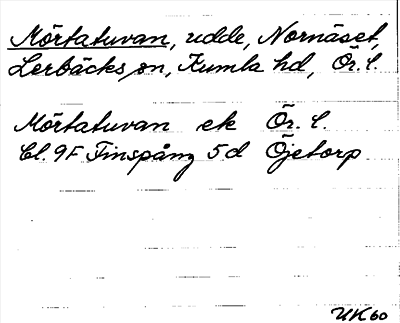 Mörtatuvan, udde, Nornäset,
Lerbäcks sn, Kumla hd, Ör. l.
Mörtatuvan ek Ör. l.
Bl. 9F Finspång 5d Öjetorp
UK60